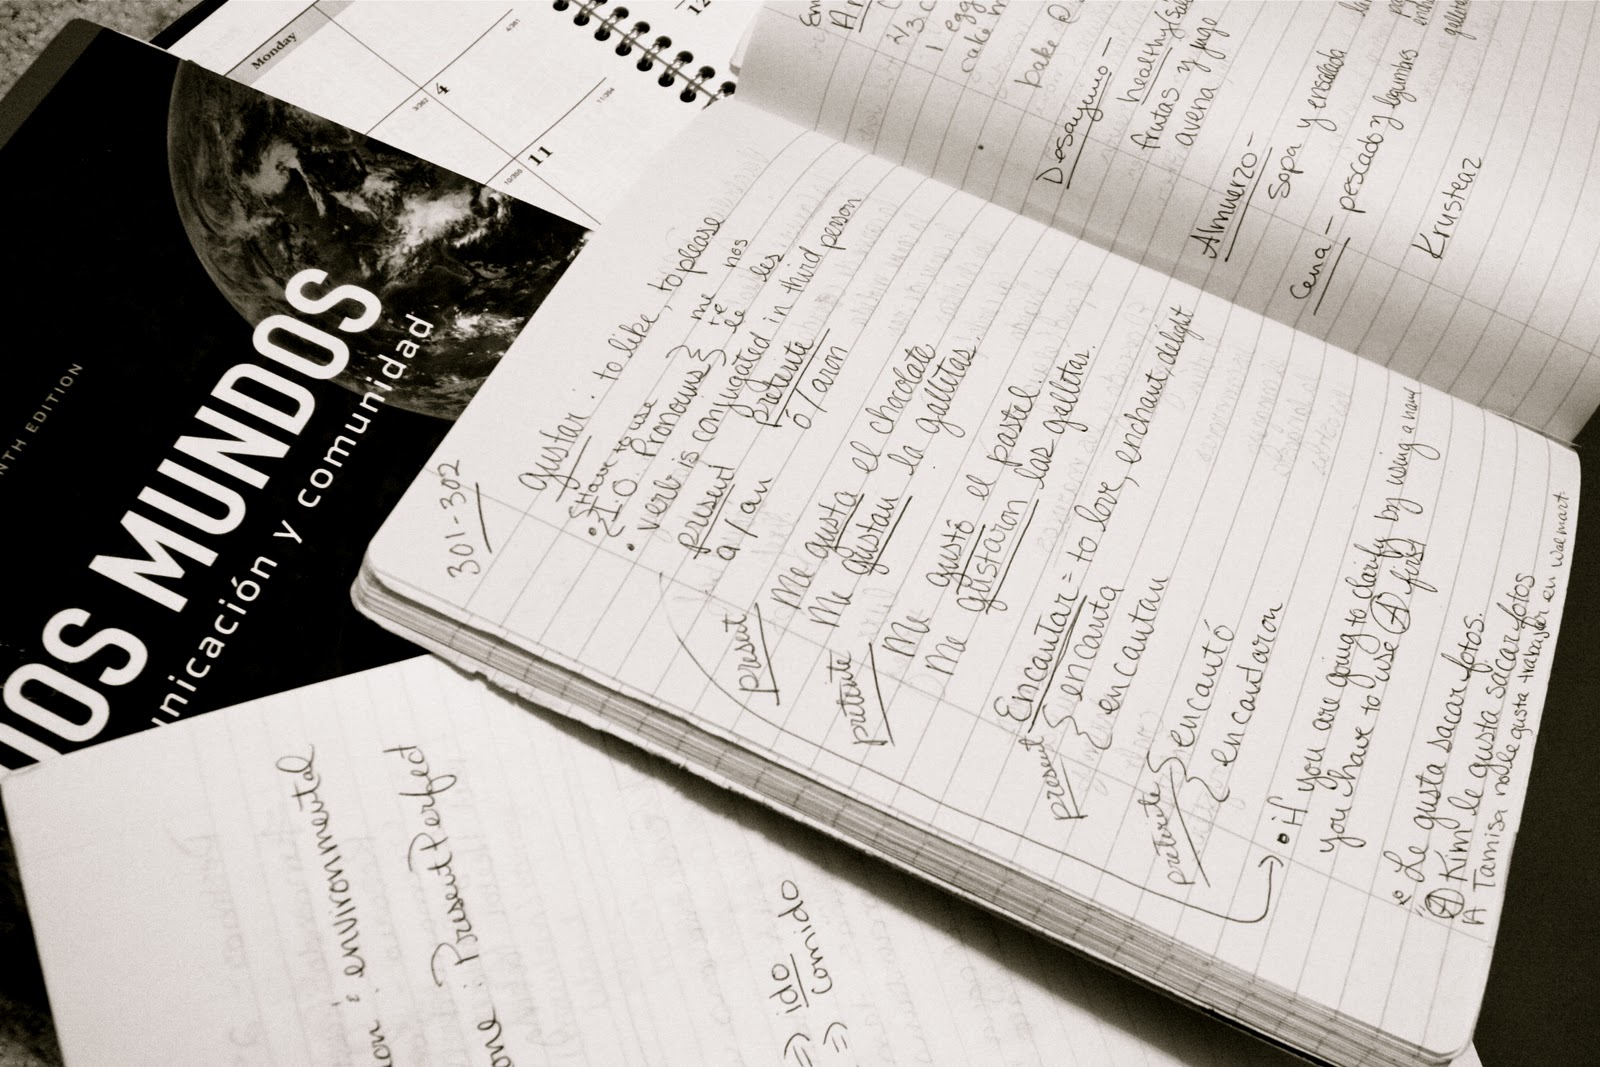 NTH EDITION
DOS MUNDOS
unicación y comunidad
Monday
4
3/362
4/361
11
10/355
11/354
12
301-302
gustar: to like, to please
Have to use
• I.O. Pronouns } me nos
te
le les
• verb is conjugated in third person
present preterite
a/an ó/aron
present Me gusta el chocolate
Me gustan la galletas.
preterite Me gustó el pastel.
Me gustaron las galletas.
Encantar = to love, enchant, delight
present { encanta
{ encantan
preterite { encantó
{ encantaron
→ • if you are going to clarify by using a name
you have to use A first
Le gusta sacar fotos.
A Kim le gusta sacar fotos
A Tamisa no le gusta trabajar en Walmart
1 egg
cake m
bake @
Desayuno –
healthy
frutas y jugo
avena
Almuerzo –
sopa y ensalada
Cena – pescado y legumbres
Krusteaz
ion : environmental
one : Present Perfect
⇒ ido
⇒ comido